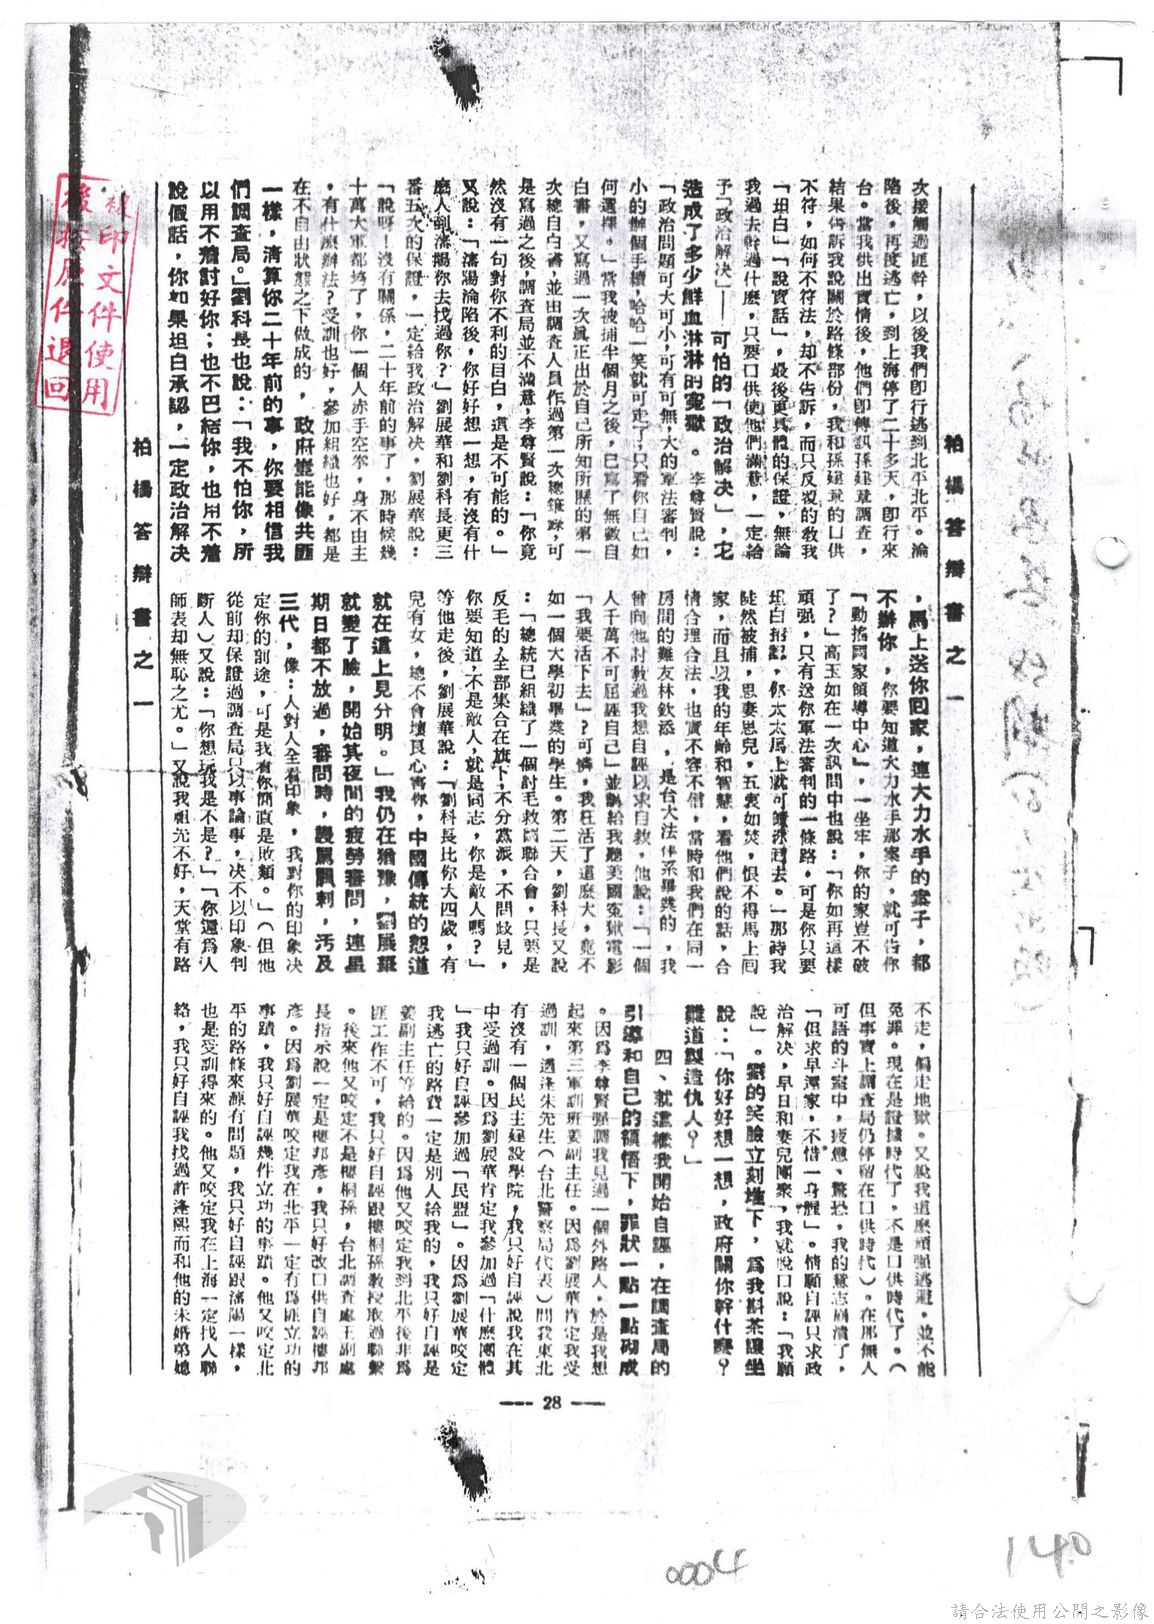 柏楊答辯書之一
次接觸過匪幹，以後我們即行逃到北平北平。淪
陷後，再度逃亡，到上海停了二十多天，即行來
台。當我供出實情後，他們即轉訊孫建章調查，
結果告訴我說關於路條部份，我和孫建章的口供
不符，如何不符法，却不告訴，而只反覆的教我
「坦白」「說實話」，最後更具體的保證，無論
我過去幹過什麼，只要口供使他們滿意，一定給
予「政治解決」——可怕的「政治解決」，它
造成了多少鮮血淋淋的寃獄。李尊賢說：
「政治問題可大可小，可有可無，大的軍法審判，
小的辦個手續，哈哈一笑就可走了，只看你自己如
何選擇。」當我被捕半個月之後，已寫了無數自
白書，又寫過一次眞正出於自己所知所歷的第一
次總自白書，並由調查人員作過第一次總筆錄，可
是寫過之後，調查局並不滿意，李尊賢說：「你竟
然沒有一句對你不利的自白，這是不可能的。」
又說：「瀋陽淪陷後，你好好想一想，有沒有什
麼人到瀋陽你去找過你？」劉展華和劉科長更三
番五次的保證，一定給我政治解決。劉展華說：
「說呀！沒有關係，二十年前的事了，那時候幾
十萬大軍都垮了，你一個人赤手空拳，身不由主
，有什麼辦法？受訓也好，參加組織也好，都是
在不自由狀態之下做的，政府豈能像共匪
一樣，清算你二十年前的事，你要相信我
們調查局。」劉科長也說：「我不怕你，所
以用不着討好你；也不巴結你，也用不着
說假話，你如果坦白承認，一定政治解決
，馬上送你回家，連大力水手的案子，都
不辦你，你要知道大力水手那案子，就可告你
「動搖國家領導中心」，一坐牢，你的家豈不破
了？」高玉如在一次訊問中也說：「你如再這樣
頑强，只有送你軍法審判的一條路，可是你只要
坦白招認，你太太馬上就可接你回去。」那時我
陡然被捕，思妻思兒，五衷如焚，恨不得馬上回
家，而且以我的年齡和智慧，看他們說的話，合
情合理合法，也實不容不信，當時和我們在同一
房間的難友林欽添，是台大法律系畢業的，我
曾向他討敎過我想自誣以求自救，他說：「一個
人千萬不可屈誣自己」並講給我聽美國寃獄電影
「我要活下去」？可憐，我枉活了這麼大，竟不
如一個大學初畢業的學生。第二天，劉科長又說
：「總統已組織了一個討毛救國聯合會，只要是
反毛的人全部集合在旗下，不分黨派，不問歧見，
你要知道，不是敵人，就是同志，你是敵人嗎？」
等他走後，劉展華說：「劉科長比你大四歲，有
兒有女，總不會壞良心害你，中國傳統的恕道
就在這上見分明。」我仍在猶豫，劉展華
就變了臉，開始其夜間的疲勞審問，連星
期日都不放過，審問時，謾罵諷刺，汚及
三代，像：人對人全看印象，我對你的印象决
定你的前途，可是我看你簡直是敗類。」（但他
從前却保證過調查局只以事論事，决不以印象判
斷人）又說：「你想玩我是不是？」「你還爲人
師表却無恥之尤。」又說我祖先不好，天堂有路
不走，偏走地獄。又說我這麼頑强逃避。並不能
免罪。現在是證據時代了，不是口供時代了。（
但事實上調查局仍停留在口供時代）。在那無人
可語的斗室中，疲憊、驚恐，我的意志崩潰了，
「但求早還家，不惜一身腥」。情願自誣只求政
治解決，早日和妻兒團聚，我就脫口說：「我願
說」。劉的笑臉立刻堆下，爲我斟茶讓坐
說：「你好好想一想，政府關你幹什麼？
難道製造仇人？」
四、就這樣我開始自誣，在調查局的
引導和自己的領悟下，罪狀一點一點湊成
。因爲李尊賢强調我見過一個外路人，於是我想
起來第三軍訓班姜副主任。因爲劉展華肯定我受
過訓，適逢朱先生（台北警察局代表）問我東北
有沒有一個民主建設學院，我只好自誣說我在其
中受過訓。因爲劉展華肯定我參加過「什麼團體
」我只好自誣參加過「民盟」。因爲劉展華咬定
我逃亡的路費一定是別人給我的，我只好自誣是
姜副主任等給的。因爲他又咬定我到北平後非爲
匪工作不可，我只好自誣跟樓桐孫敎授取過聯繫
。後來他又咬定不是樓桐孫，台北調查處王副處
長指示說一定是樓邦彥，我只好改口供自誣樓邦
彥。因爲劉展華咬定我在北平一定有爲匪立功的
事蹟，我只好自誣幾件立功的事蹟。他又咬定北
平的路條來源有問題，我只好自誣跟瀋陽一樣，
也是受訓得來的。他又咬定我在上海一定找人聯
絡，我只好自誣我找過許逢熙而和他的未婚弟媳
柏楊答辯書之一
— 28 —
被印文件使用
後按原件退回
0004
140
請合法使用公開之影像